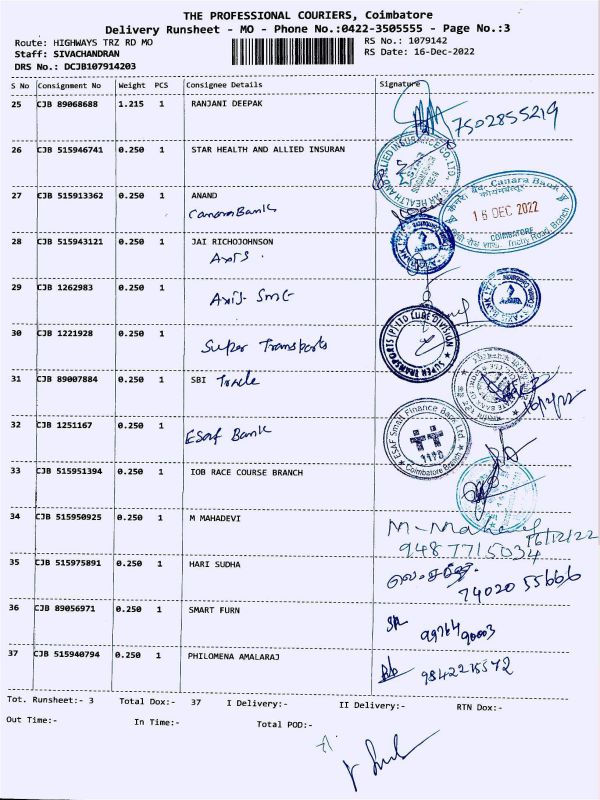 THE PROFESSIONAL COURIERS, Coimbatore
Delivery Runsheet - MO - Phone No.:0422-3505555 - Page No.:3
Route: HIGHWAYS TRZ RD MO
RS No.: 1079142
Staff: SIVACHANDRAN
RS Date: 16-Dec-2022
DRS No.: DCJB107914203
S No Consignment No Weight PCS Consignee Details Signature
25 CJB 89068688 1.215 1 RANJANI DEEPAK
7502855219
26 CJB 515946741 0.250 1 STAR HEALTH AND ALLIED INSURAN
27 CJB 515913362 0.250 1 ANAND
Canara Bank
Canara Bank
16 DEC 2022
COIMBATORE
Trichy Road Branch
28 CJB 515943121 0.250 1 JAI RICHOJOHNSON
Axis
29 CJB 1262983 0.250 1
Axis- SME
30 CJB 1221928 0.250 1
Super Transports
SUPER TRANSPORTS (P) LTD CUBE DIVISION
31 CJB 89007884 0.250 1 SBI Trade
16/12/22
32 CJB 1251167 0.250 1
Esaf Bank
ESAF Small Finance Bank Ltd.
Coimbatore Branch
33 CJB 515951394 0.250 1 IOB RACE COURSE BRANCH
34 CJB 515950925 0.250 1 M MAHADEVI
16/12/22
9487715034
35 CJB 515975891 0.250 1 HARI SUDHA
74020 55666
36 CJB 89056971 0.250 1 SMART FURN
99764 90003
37 CJB 515940794 0.250 1 PHILOMENA AMALARAJ
9842215572
Tot. Runsheet:- 3 Total Dox:- 37 I Delivery:- II Delivery:- RTN Dox:-
Out Time:- In Time:- Total POD:-